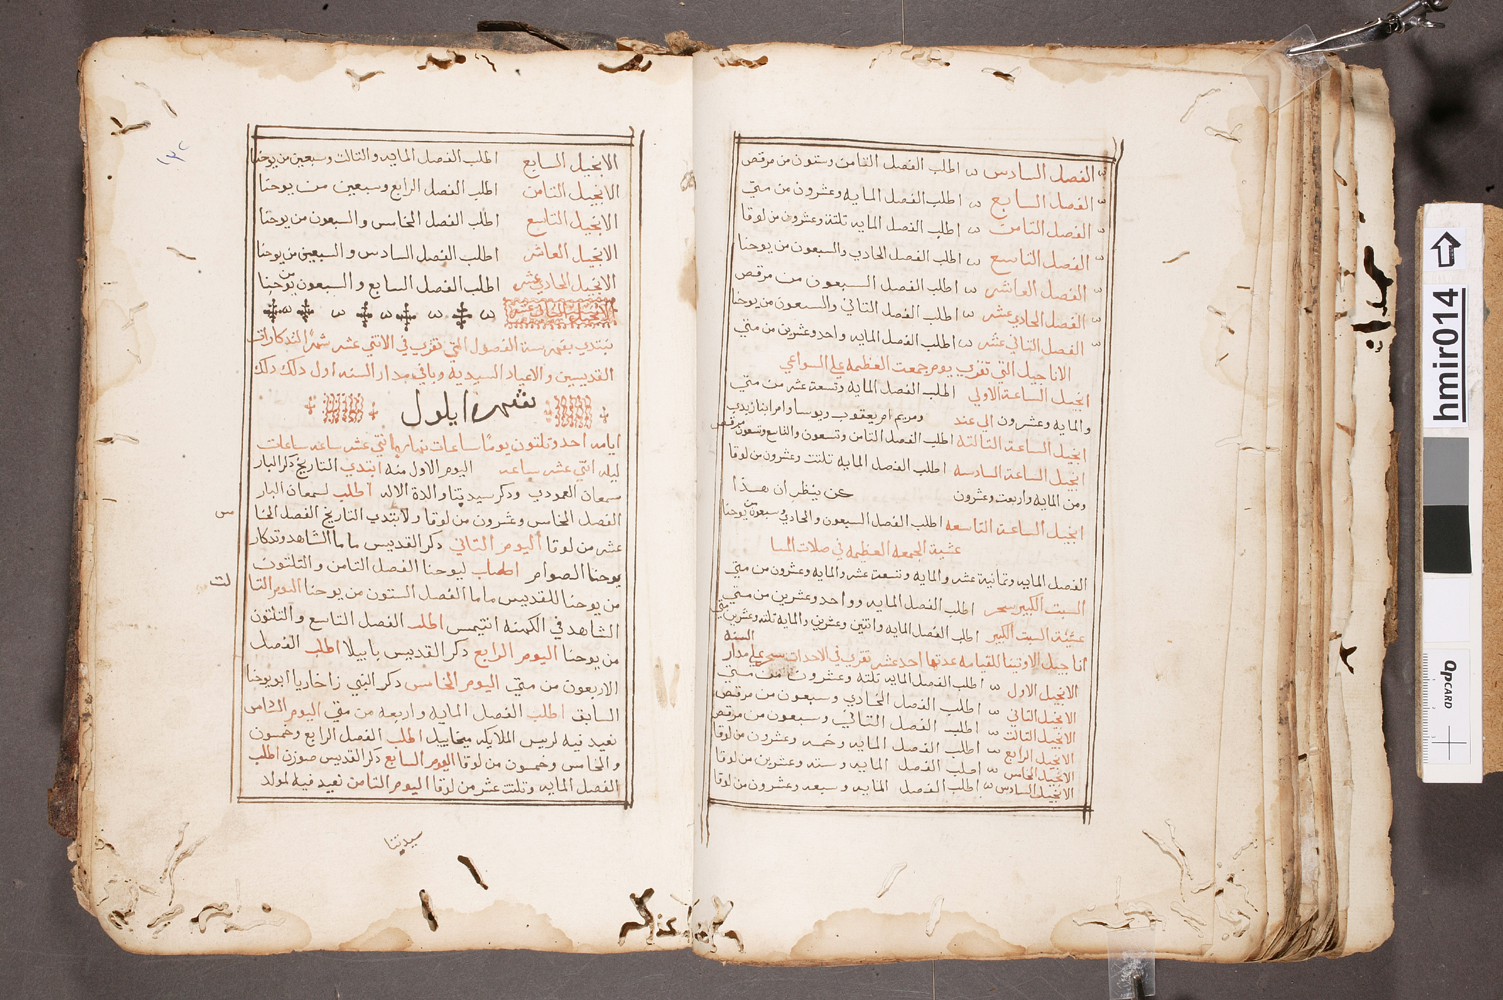 الفصل السادس اطلب الفصل الثامن وستون من مرقص
الفصل السابع اطلب الفصل المايه وعشرون من متي
الفصل الثامن اطلب الفصل المايه تلتة وعشرون من لوقا
الفصل التاسع اطلب الفصل الحادي والسبعون من يوحنا
الفصل العاشر اطلب الفصل السبعون من مرقص
الفصل الحادي عشر اطلب الفصل التاني والسبعون من يوحنا
الفصل التاني عشر اطلب الفصل المايه واحد وعشرين من متي
الاناجيل التي تقري يوم جمعت العظيمه علي السواعي
انجيل الساعة الاولي اطلب الفصل المايه وتسعة عشر من متي
والمايه وعشرون الي عند ومريم ام يعقوب ويوسا وام ابنا زبدي
انجيل الساعة التالته اطلب الفصل التامن وتسعون والتاسع وتسعون مرقص
انجيل الساعة السادسه اطلب الفصل المايه تلتت وعشرون من لوقا
ومن المايه واربعت وعشرون عن ينظر ان هذا
انجيل الساعة التاسعه اطلب الفصل السبعون والحادي وسبعون من يوحنا
عشية الجمعه العظيمه في صلات المسا
الفصل المايه وتمانية عشر والمايه وتسعت عشر والمايه وعشرون من متي
السبت الكبير سحر اطلب الفصل المايه وواحد وعشرين من متي
عشية السبت الكبير اطلب الفصل المايه واتنين وعشرين والمايه تلته وعشرين متي
اناجيل الاوتينا للقيامه عدتها احد عشر تقري في الاحدات سحر علي مدار السنه
الانجيل الاول اطلب الفصل المايه تلته وعشرون من متي
الانجيل التاني اطلب الفصل الحادي وسبعون من مرقص
الانجيل التالت اطلب الفصل التاني وسبعون من مرقص
الانجيل الرابع اطلب الفصل المايه وخمسه وعشرون من لوقا
الانجيل الخامس اطلب الفصل المايه وسته وعشرين من لوقا
الانجيل السادس اطلب الفصل المايه وسبعه وعشرون من لوقا
١٣٢
الانجيل السابع اطلب الفصل المايه والتالت وسبعين من يوحنا
الانجيل التامن اطلب الفصل الرابع وسبعين من يوحنا
الانجيل التاسع اطلب الفصل الخامس والسبعون من يوحنا
الانجيل العاشر اطلب الفصل السادس والسبعين من يوحنا
الانجيل الحادي عشر اطلب الفصل السابع والسبعون من يوحنا
نبتدي بفهرسة الفصول التي تقري في الاتني عشر شهرا لتذكارات
القديسين والاعياد السيديه وباقي مدار السنه اول ذلك
شهر ايلول
ايامه احد وتلتون يوما ساعات نهاره اتني عشر ساعه ساعات
ليله اتني عشر ساعه اليوم الاول منه ابتدي التاريخ ذكر البار
سمعان العمودي وذكر سيدتنا والدة الاله اطلب لسمعان البار
الفصل الخامس وعشرون من لوقا ولابتدي التاريخ الفصل
عشر من لوقا اليوم التاني ذكر القديس ماما الشاهد وتذكار
يوحنا الصوام اطلب ليوحنا الفصل التامن والتلتون
من يوحنا للقديس ماما الفصل الستون من يوحنا اليوم التا
الشاهد في الكهنه انتيمس اطلب الفصل التاسع والتلتون
من يوحنا اليوم الرابع ذكر القديس بابيلا اطلب الفصل
الاربعون من متي اليوم الخامس ذكر النبي زاخاريا ابو يوحنا
السابق اطلب الفصل المايه واربعه من متي اليوم السادس
نعيد فيه لريس الملايكه ميخاييل اطلب الفصل الرابع وخمسون
والخامس وخمسون من لوقا اليوم السابع ذكر القديس صوزن اطلب
الفصل المايه وتلتت عشر من لوقا اليوم التامن نعيد فيه لمولد
سيدتنا
hmir014
dpCARD